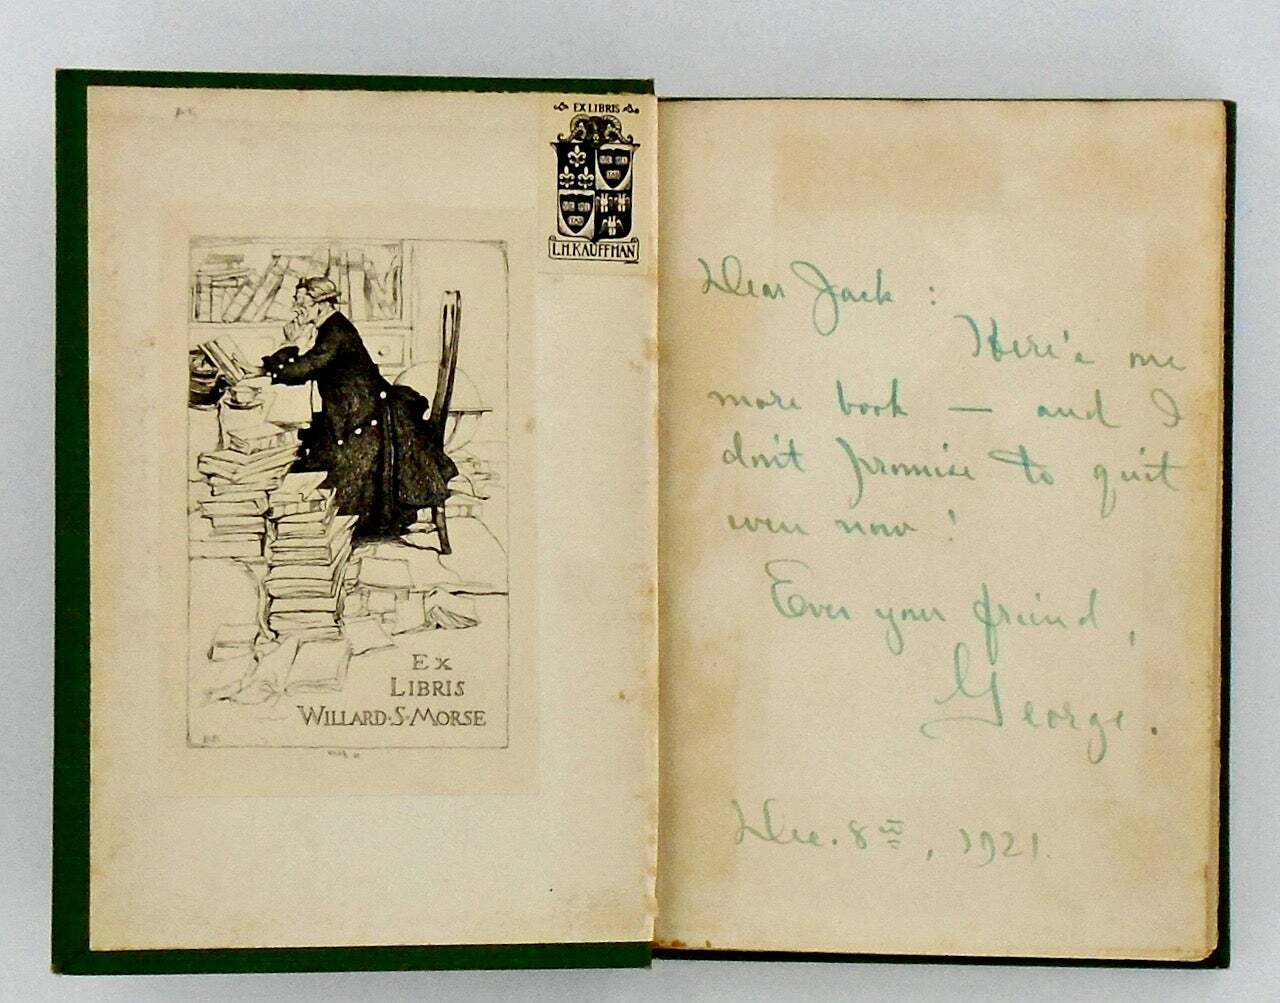 EX LIBRIS
L.H. KAUFFMAN
EX
LIBRIS
WILLARD·S·MORSE
Dear Jack :
Here's one
more book — and I
don't promise to quit
even now !
Ever your friend,
George.
Dec. 8th, 1921.